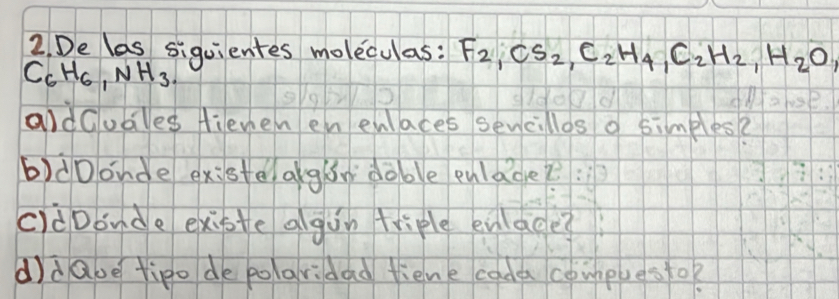 2. De las siguientes moléculas: F2, CS2, C2H4, C2H2, H2O,
C6H6, NH3.
a) ¿Cuáles tienen en enlaces sencillos o simples?
b) ¿Dónde existe algún doble enlace?
c) ¿Dónde existe algún triple enlace?
d) ¿Qué tipo de polaridad tiene cada compuesto?